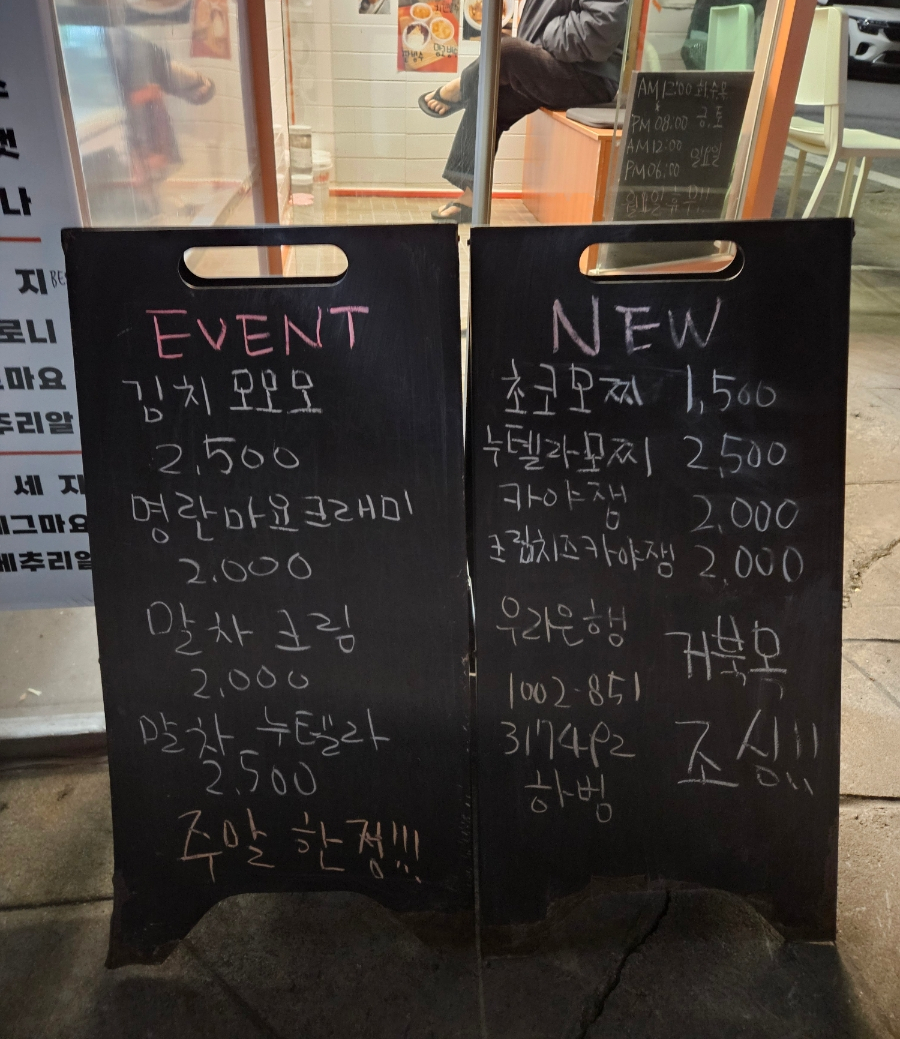 EVENT
김치 모모모
2,500
명란마요크래미
2,000
말차 크림
2,000
말차 누텔라
2,500
주말 한정!!!
NEW
초코모찌 1,500
누텔라모찌 2,500
카야잼 2,000
크림치즈카야잼 2,000
우라은행
1002-851
하범
거북목
조심!!
AM 12:00 화수목
PM 08:00 금,토
AM 12:00
PM 06:00 일요일
월요일 휴무!!
나
지
로니
마요
추리알
세 지
그마요
메추리알